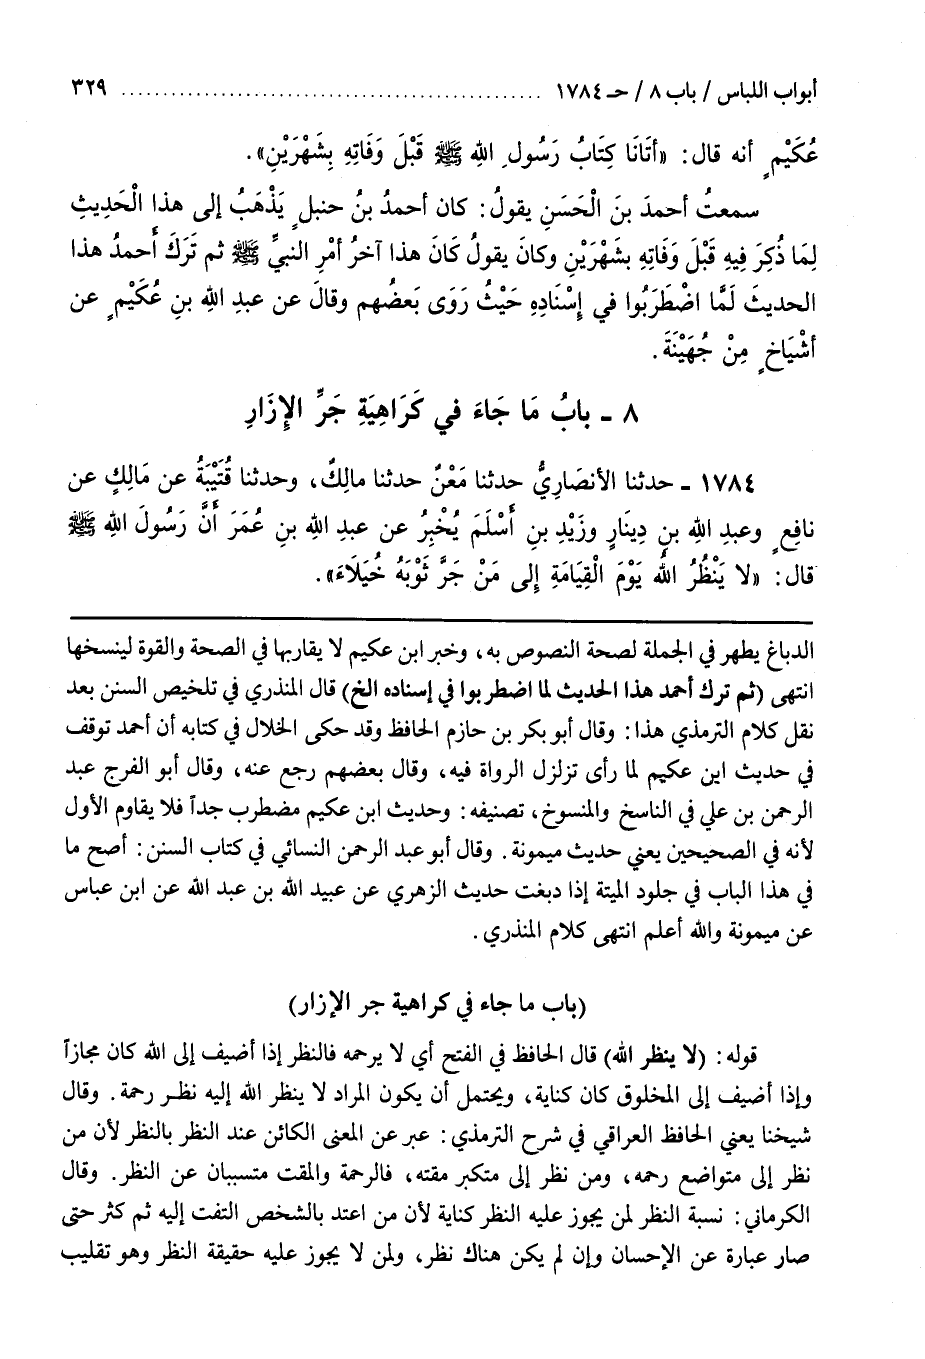 أبواب اللباس / باب ٨ / حـ ١٧٨٤ ................................................ ٣٢٩
عُكَيْمٍ أنه قال: «أتَانَا كِتَابُ رَسُولِ اللهِ ﷺ قَبْلَ وَفَاتِهِ بِشَهْرَيْنِ».
سمعتُ أحمدَ بنَ الْحَسَنِ يقولُ: كان أحمدُ بنُ حنبلٍ يَذْهَبُ إلى هذا الْحَدِيثِ
لِمَا ذُكِرَ فِيهِ قَبْلَ وَفَاتِهِ بشَهْرَيْنِ وكانَ يقولُ كَانَ هذا آخرُ أمْرِ النبيِّ ﷺ ثم تَرَكَ أَحمدُ هذا
الحديثَ لَمَّا اضْطَرَبُوا في إسْنَادِهِ حَيْثُ رَوَى بَعضُهم وقالَ عن عبدِ اللهِ بنِ عُكَيْمٍ عن
أشْيَاخٍ مِنْ جُهَيْنَةَ.
٨ ـ بابُ مَا جَاءَ في كَرَاهِيَةِ جَرِّ الإِزَارِ
١٧٨٤ ـ حدثنا الأنصَارِيُّ حدثنا مَعْنٌ حدثنا مالِكٌ، وحدثنا قُتَيْبَةُ عن مَالِكٍ عن
نافِعٍ وعبدِ اللهِ بنِ دِينَارٍ وزَيْدِ بنِ أَسْلَمَ يُخْبِرُ عن عبدِ اللهِ بنِ عُمَرَ أَنَّ رَسُولَ اللهِ ﷺ
قال: «لا يَنْظُرُ اللهُ يَوْمَ الْقِيَامَةِ إلى مَنْ جَرَّ ثَوْبَهُ خُيَلَاءَ».
الدباغ يطهر في الجملة لصحة النصوص به، وخبر ابن عكيم لا يقاربها في الصحة والقوة لينسخها
انتهى (ثم ترك أحمد هذا الحديث لما اضطربوا في إسناده الخ) قال المنذري في تلخيص السنن بعد
نقل كلام الترمذي هذا: وقال أبو بكر بن حازم الحافظ وقد حكى الخلال في كتابه أن أحمد توقف
في حديث اين عكيم لما رأى تزلزل الرواة فيه، وقال بعضهم رجع عنه، وقال أبو الفرج عبد
الرحمن بن علي في الناسخ والمنسوخ، تصنيفه: وحديث ابن عكيم مضطرب جداً فلا يقاوم الأول
لأنه في الصحيحين يعني حديث ميمونة. وقال أبو عبد الرحمن النسائي في كتاب السنن: أصح ما
في هذا الباب في جلود الميتة إذا دبغت حديث الزهري عن عبيد الله بن عبد الله عن ابن عباس
عن ميمونة والله أعلم انتهى كلام المنذري.
(باب ما جاء في كراهية جر الإزار)
قوله: (لا ينظر الله) قال الحافظ في الفتح أي لا يرحمه فالنظر إذا أضيف إلى الله كان مجازاً
وإذا أضيف إلى المخلوق كان كناية، ويحتمل أن يكون المراد لا ينظر الله إليه نظر رحمة. وقال
شيخنا يعني الحافظ العراقي في شرح الترمذي: عبر عن المعنى الكائن عند النظر بالنظر لأن من
نظر إلى متواضع رحمه، ومن نظر إلى متكبر مقته، فالرحمة والمقت متسببان عن النظر. وقال
الكرماني: نسبة النظر لمن يجوز عليه النظر كناية لأن من اعتد بالشخص التفت إليه ثم كثر حتى
صار عبارة عن الإحسان وإن لم يكن هناك نظر، ولمن لا يجوز عليه حقيقة النظر وهو تقليب